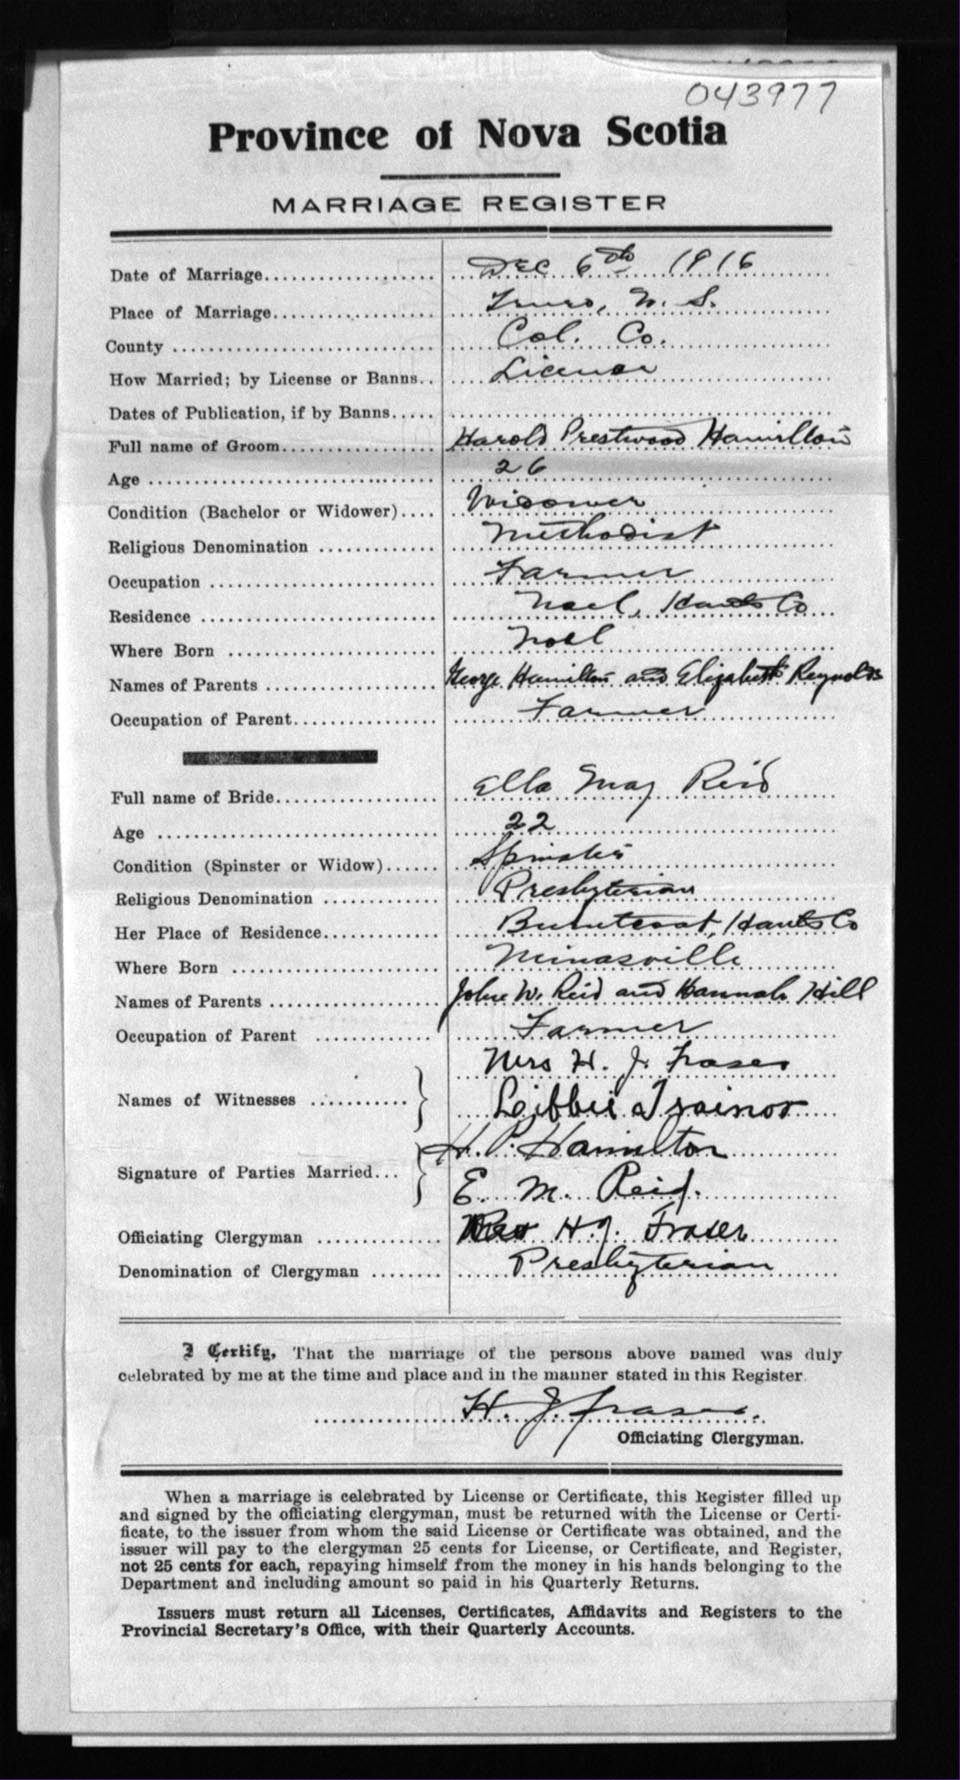 043977
Province of Nova Scotia
MARRIAGE REGISTER
Date of Marriage.................... Dec 6th 1916
Place of Marriage.................... Truro, N. S.
County .................... Col. Co.
How Married; by License or Banns.. License
Dates of Publication, if by Banns.....
Full name of Groom.................... Harold Prestwood Hamilton
Age .................... 26
Condition (Bachelor or Widower).... Widower
Religious Denomination .................... Methodist
Occupation .................... Farmer
Residence .................... Noel, Hants Co
Where Born .................... Noel
Names of Parents .................... George Hamilton and Elizabeth Reynolds
Occupation of Parent.................... Farmer
Full name of Bride.................... Ella May Reid
Age .................... 22
Condition (Spinster or Widow)...... Spinster
Religious Denomination ............ Presbyterian
Her Place of Residence............. Burntcoat, Hants Co
Where Born .................... Minasville
Names of Parents .................... John W. Reid and Hannah Hill
Occupation of Parent ............. Farmer
Mrs H. J. Fraser
Names of Witnesses ........... Libbie Trainor
H. P. Hamilton
Signature of Parties Married...
E. M. Reid.
Officiating Clergyman .............. Rev H. J. Fraser
Denomination of Clergyman ........ Presbyterian
I Certify, That the marriage of the persons above named was duly
celebrated by me at the time and place and in the manner stated in this Register.
H. J. Fraser.
Officiating Clergyman.
When a marriage is celebrated by License or Certificate, this Register filled up
and signed by the officiating clergyman, must be returned with the License or Certi-
ficate, to the issuer from whom the said License or Certificate was obtained, and the
issuer will pay to the clergyman 25 cents for License, or Certificate, and Register,
not 25 cents for each, repaying himself from the money in his hands belonging to the
Department and including amount so paid in his Quarterly Returns.
Issuers must return all Licenses, Certificates, Affidavits and Registers to the
Provincial Secretary's Office, with their Quarterly Accounts.